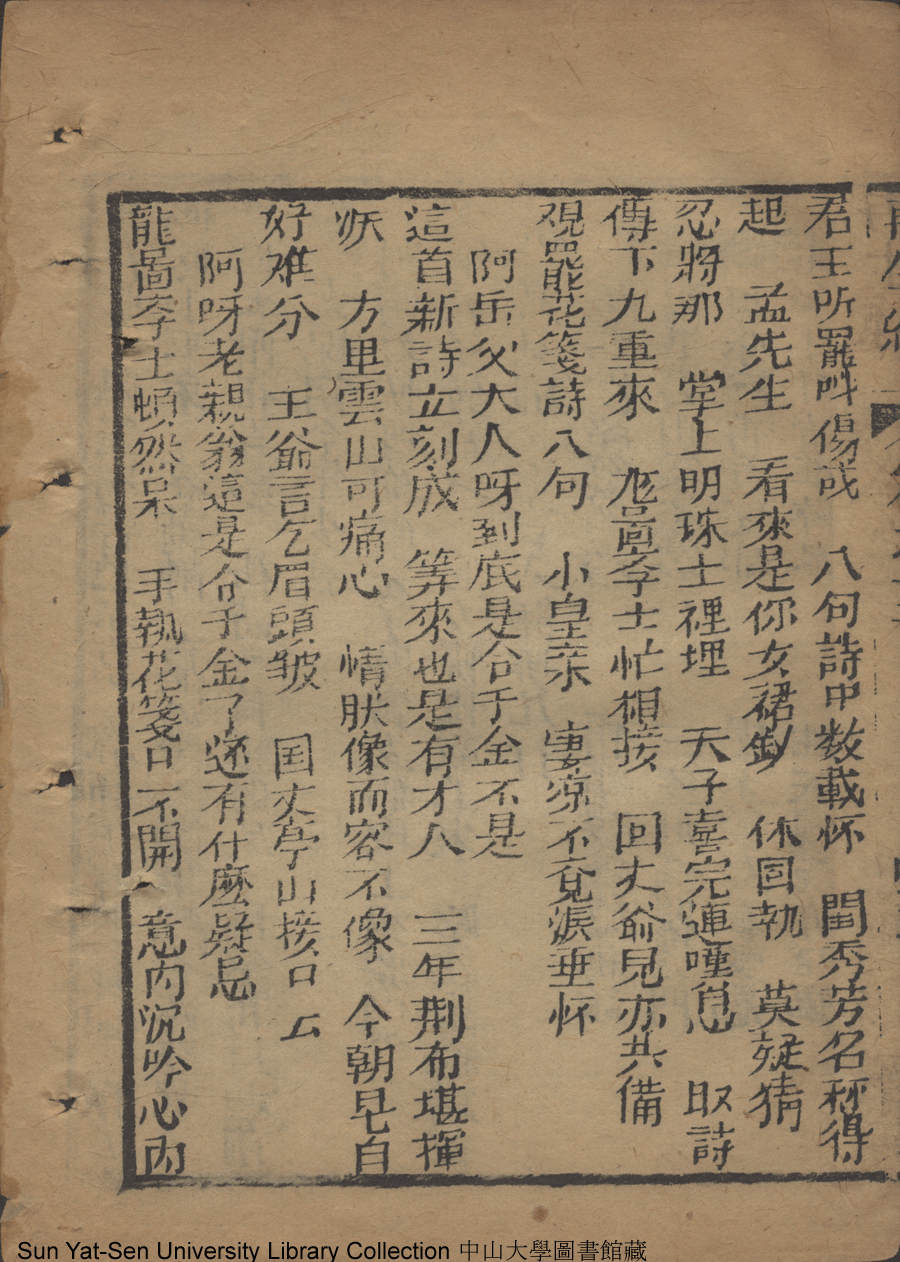 君王听罷呌傷哉　八句詩中数載怀　閨秀芳名称得
起　孟先生　看來是你女裙釵　休固執　莫疑猜
忍將那　掌上明珠土裡埋　天子喜完連嘆息　取詩
傳下九重來　尨啚孛士忙相接　囯丈爺見亦共備
覌罷花箋詩八句　小皇亲　凄凉不竟淚垂怀
阿岳父大人呀到底是合于金不是
這首新詩立刻成　筭來也是有才人　三年荆布堪揮
泪　方里雲山可痛心　情肰像而容不像　今朝早白
好难分　王爺言乞眉頭皱　国丈亭山接口云
阿呀老親翁這是合于金了还有什麼疑忌
龍啚孛士頓然呆　手執花箋口不開　意内沉吟心内
Sun Yat-Sen University Library Collection 中山大學圖書館藏